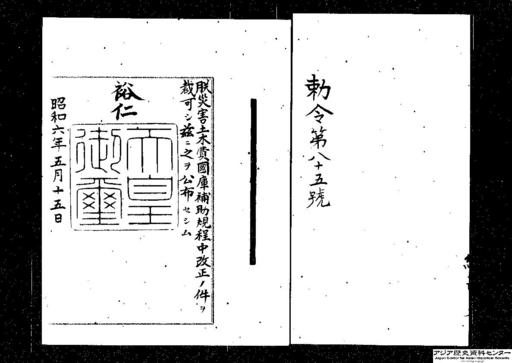 勅令第八十五號
朕災害土木費國庫補助規程中改正ノ件ヲ
裁可シ茲ニ之ヲ公布セシム
裕仁
天皇
御璽
昭和六年五月十五日
アジア歴史資料センター
Japan Center for Asian Historical Records